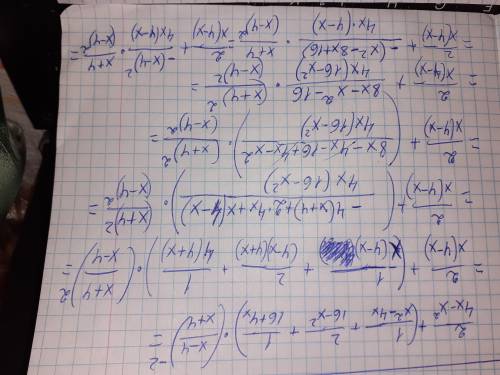 2/(4x-x²) + (1/(x²-4x) + 2/(16-x²) + 1/(16+4x)) · ((x-4)/(x+4))⁻² =
= 2/(x(4-x)) + (1/(x(4-x)) + 2/((4-x)(4+x)) + 1/(4(4+x))) · ((x+4)/(x-4))² =
= 2/(x(4-x)) + ((-4(x+4)+2·4x+x(4-x))/(4x(16-x²))) · (x+4)²/(x-4)² =
= 2/(x(4-x)) + ((8x-4x-16+4x-x²)/(4x(16-x²))) · (x+4)²/(x-4)² =
= 2/(x(4-x)) + (8x-x²-16)/(4x(16-x²)) · (x+4)²/(x-4)² =
= 2/(x(4-x)) + -(x²-8x+16)/(4x·(4-x)) · (x+4)/(x-4)² = 2/(x(4-x)) + -(x-4)²/(4x(4-x)) · (x+4)/(x-4)² =